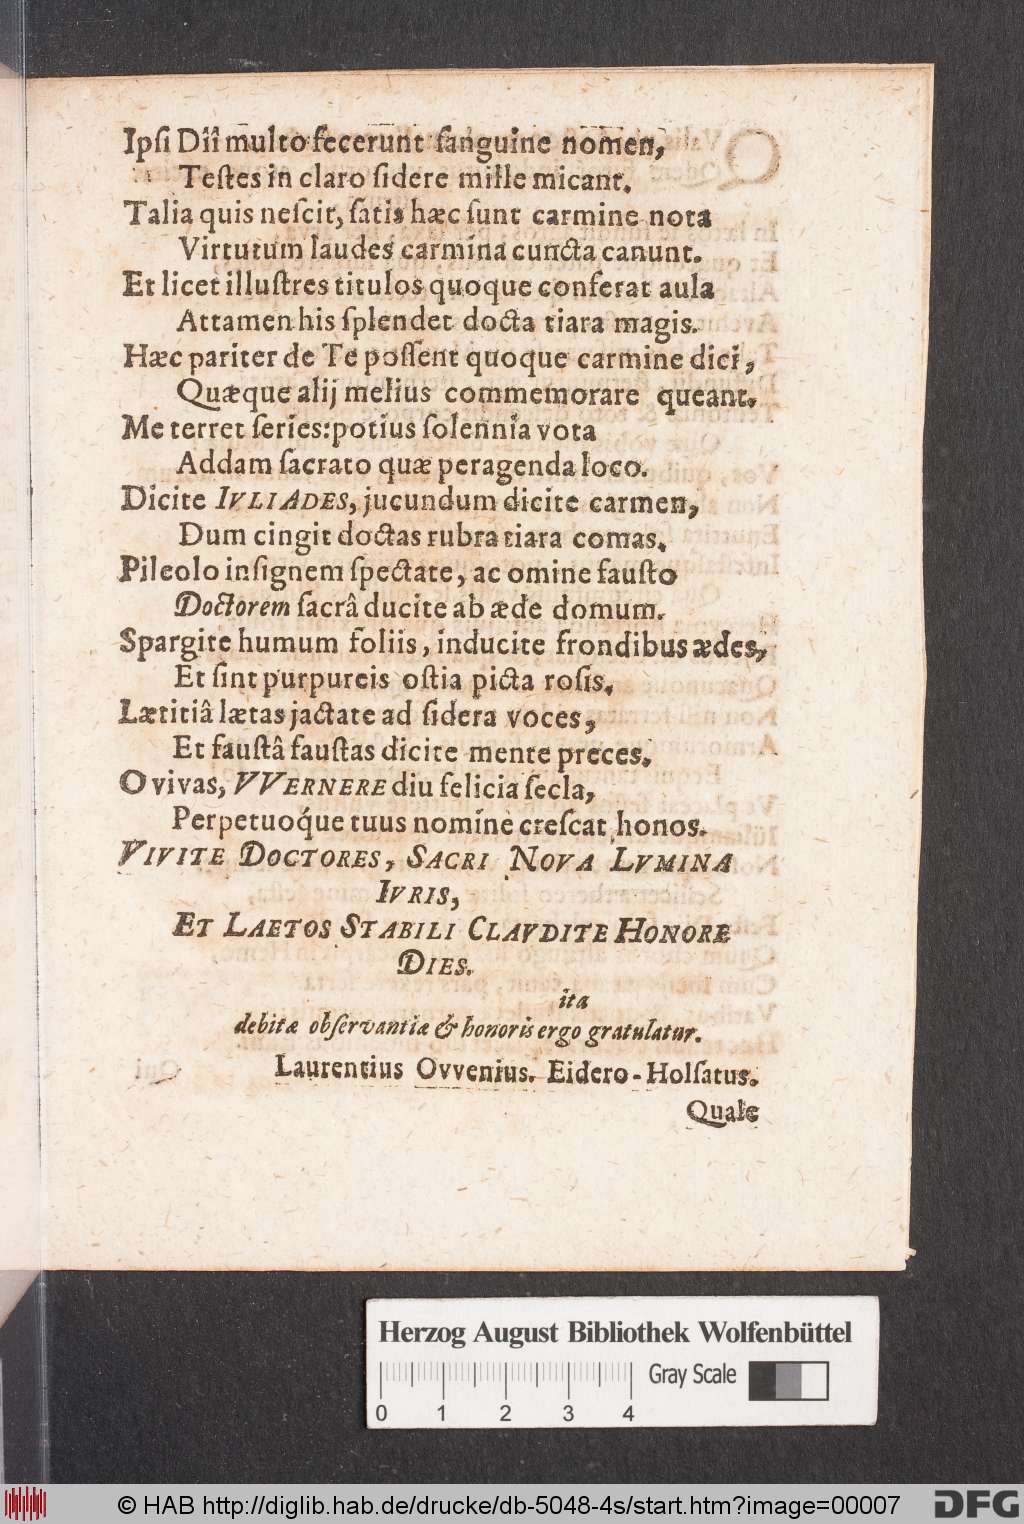 Ipſi Dîî multo fecerunt ſanguine nomen,
Teſtes in claro ſidere mille micant.
Talia quis neſcit, ſatis hæc ſunt carmine nota
Virtutum laudes carmina cuncta canunt.
Et licet illuſtres titulos quoque conferat aula
Attamen his ſplendet docta tiara magis.
Hæc pariter de Te poſſent quoque carmine dici,
Quæque alij melius commemorare queant.
Me terret ſeries: potius ſolennia vota
Addam ſacrato quæ peragenda loco.
Dicite IVLIADES, jucundum dicite carmen,
Dum cingit doctas rubra tiara comas.
Pileolo inſignem ſpectate, ac omine fauſto
Doctorem ſacrâ ducite ab æde domum.
Spargite humum foliis, inducite frondibus ædes,
Et ſint purpureis oſtia picta roſis.
Lætitiâ lætas jactate ad ſidera voces,
Et fauſtâ fauſtas dicite mente preces.
O vivas, VVERNERE diu felicia ſecla,
Perpetuoq́ue tuus nomine creſcat honos.
VIVITE DOCTORES, SACRI NOVA LVMINA
IVRIS,
ET LAETOS STABILI CLAVDITE HONORE
DIES.
ita
debitæ obſervantiæ & honoris ergo gratulatur.
Laurentius Ovvenius. Eidero-Holſatus.
Quale
Herzog August Bibliothek Wolfenbüttel
Gray Scale
0 1 2 3 4
© HAB http://diglib.hab.de/drucke/db-5048-4s/start.htm?image=00007
DFG